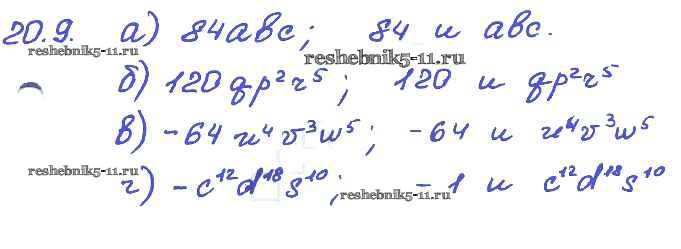 20.9. а) 84abc; 84 и abc.
reshebnik5-11.ru reshebnik5-11.ru
б) 120qp²r⁵; 120 и qp²r⁵
в) -64u⁴v³w⁵; -64 и u⁴v³w⁵
reshebnik5-11.ru
г) -c¹²d¹⁸s¹⁰; -1 и c¹²d¹⁸s¹⁰
reshebnik5-11.ru